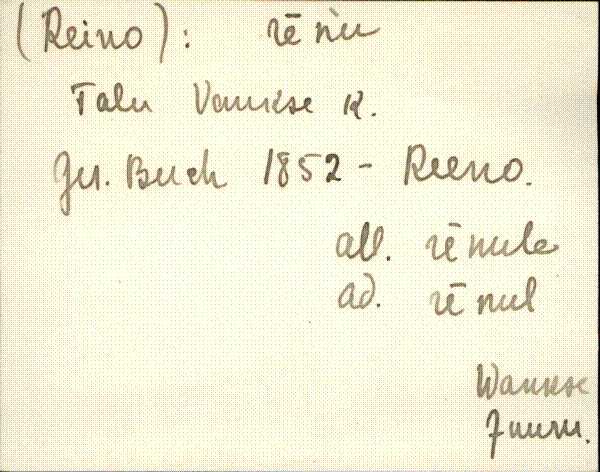 (Reino): rēnu
Talu Vankse k.
Jur. Buch 1852 - Reeno.
all. rēnule
ad. rēnul
Wankse
Juuru.